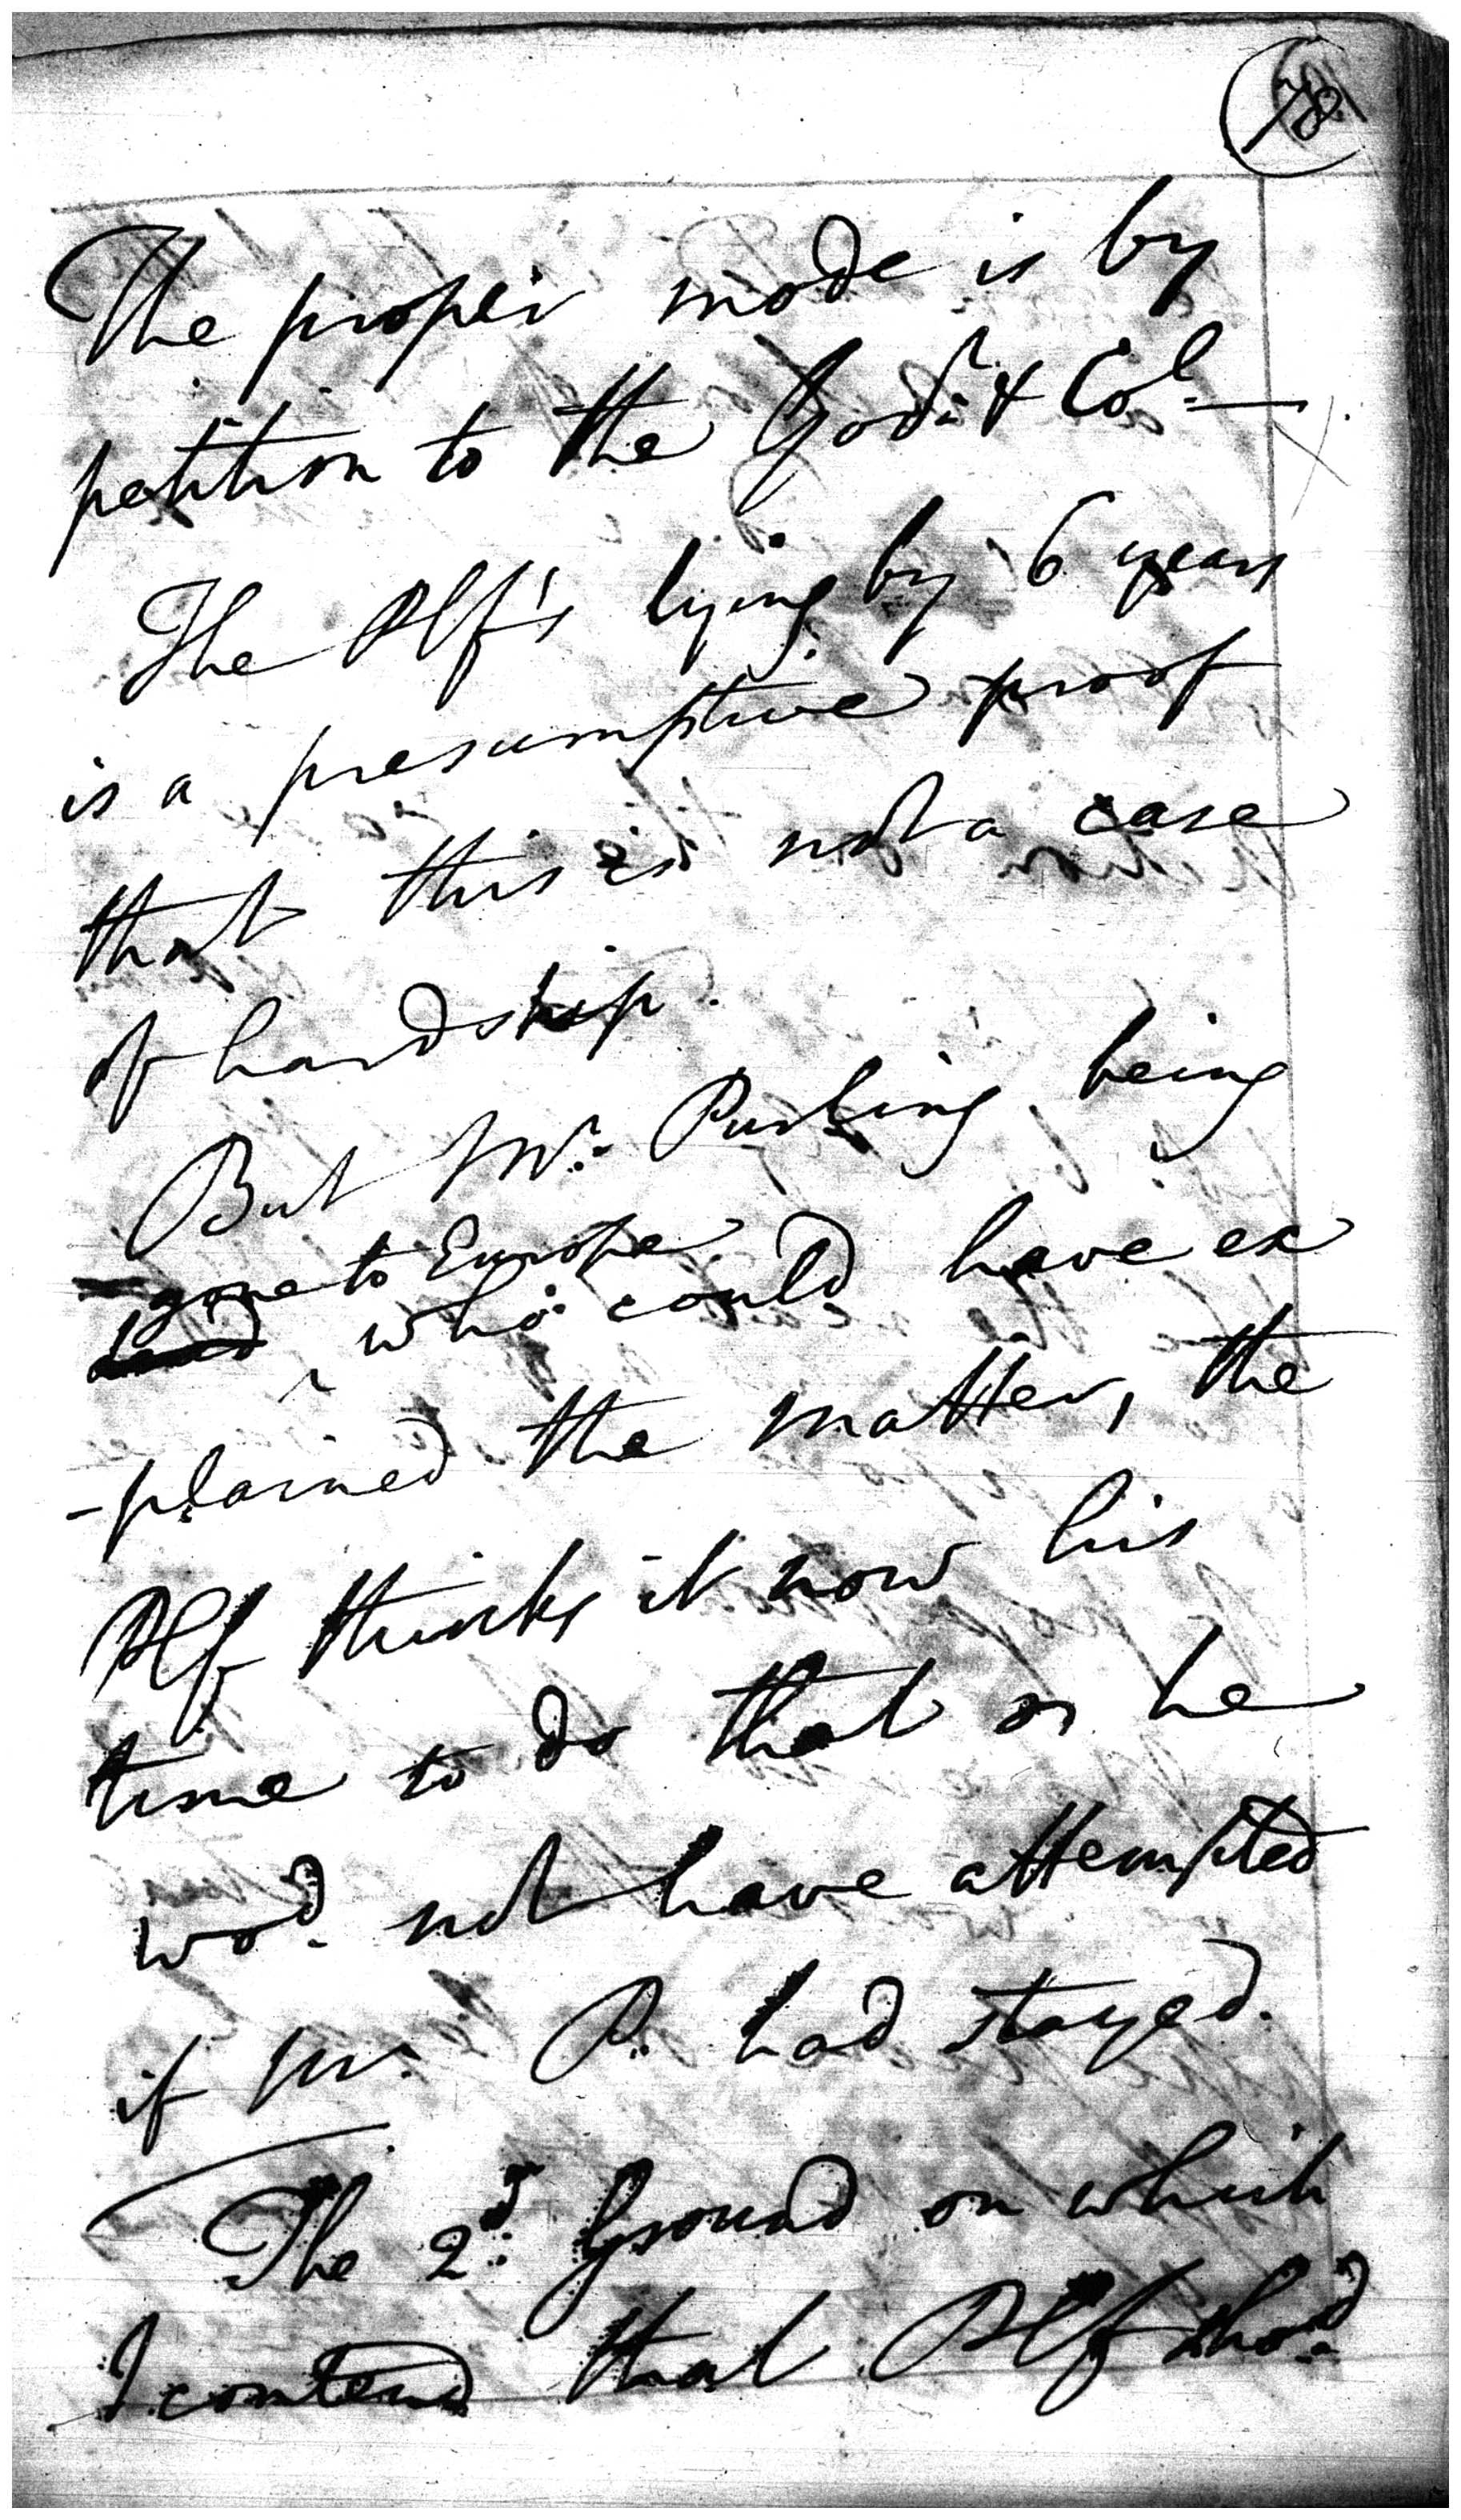 78
The proper mode is by
petition to the Govr. & Col.—
The Plf's lying by 6 years
is a presumptive proof
that this is not a case
of hardship.
But Mr. Purling being
gone to Europe
who could have ex
-plained the matter, the
Plf thinks it now his
time to do that or he
wod. not have attempted
if Mr. P. had stayed.
The 2d. Ground on which
I contend that Plf shod.